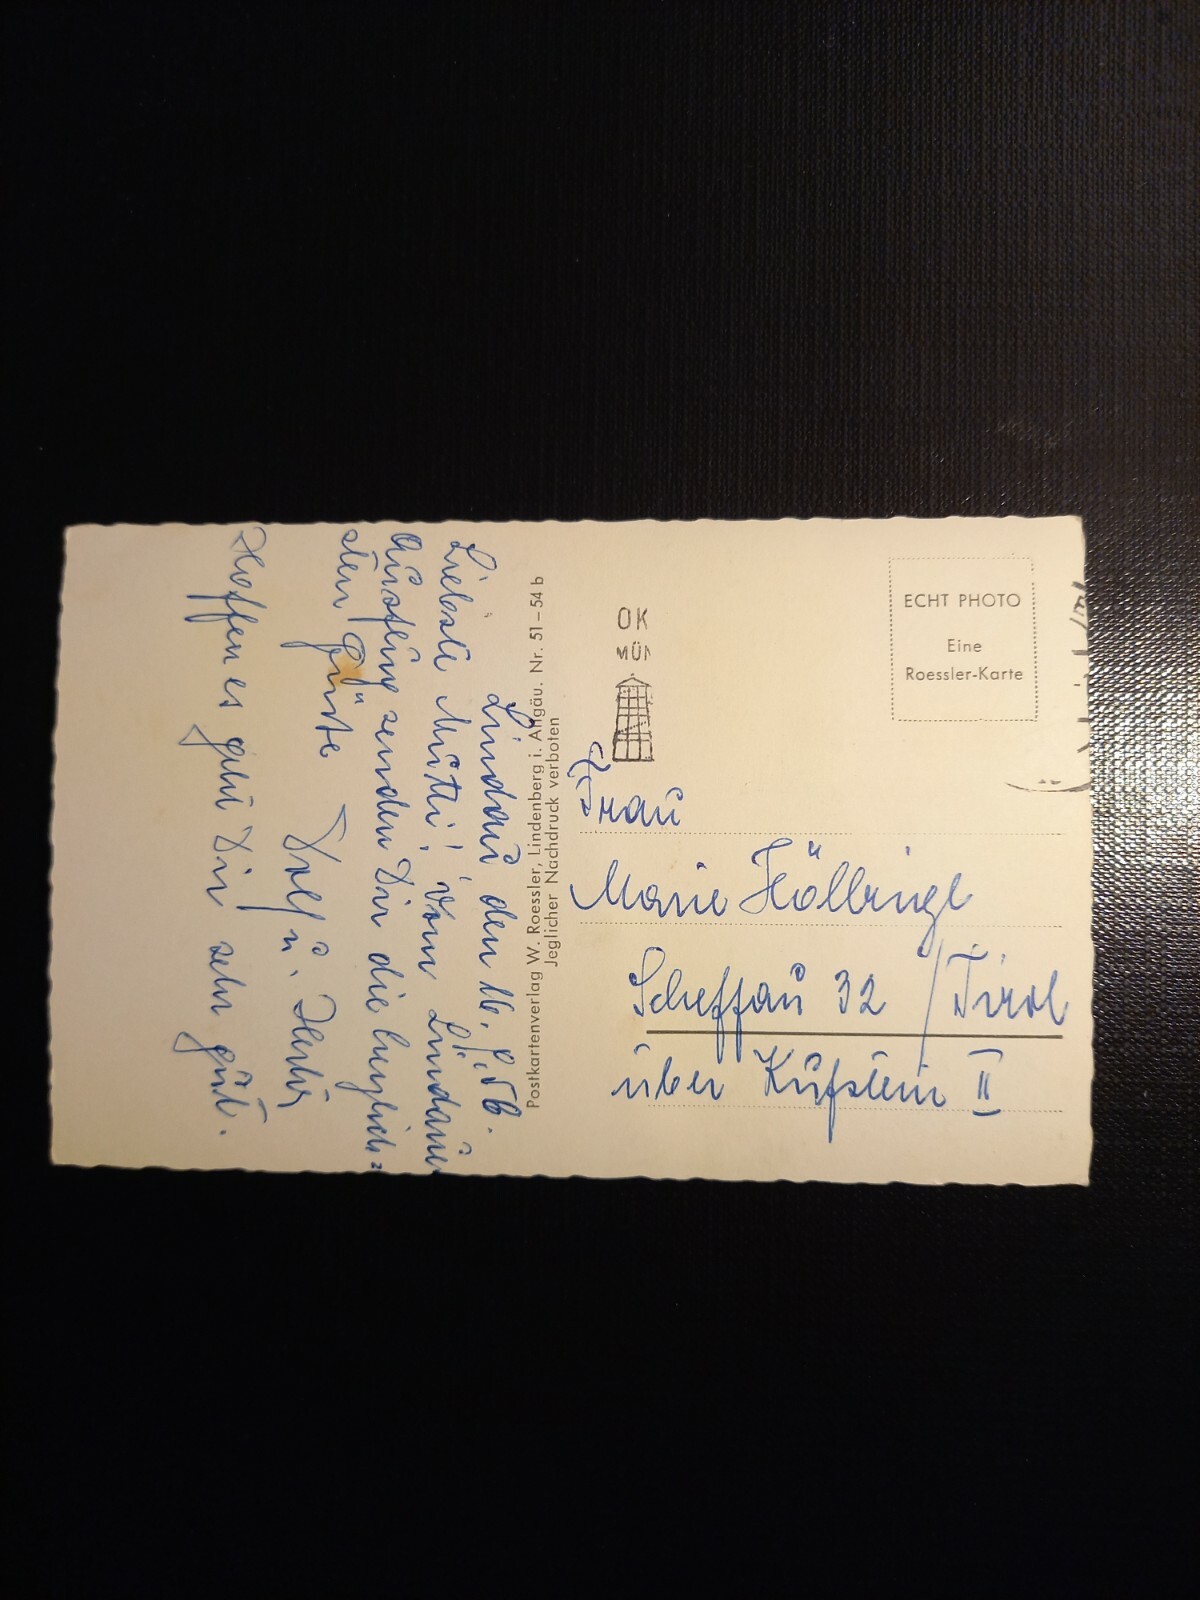 Lindau den 16. 9. 56.
Liebste Mutti! Vom Lindauer
Ausflug senden Dir die herzlich=
sten Grüße
u.
Hoffen es geht Dir sehr gut.
Postkartenverlag W. Roessler, Lindenberg i. Allgäu. Nr. 51–54 b
Jeglicher Nachdruck verboten
OK
MÜN
ECHT PHOTO
Eine
Roessler-Karte
Frau
Marie Höllrigl
Scheffau 32 / Tirol
über Kufstein II